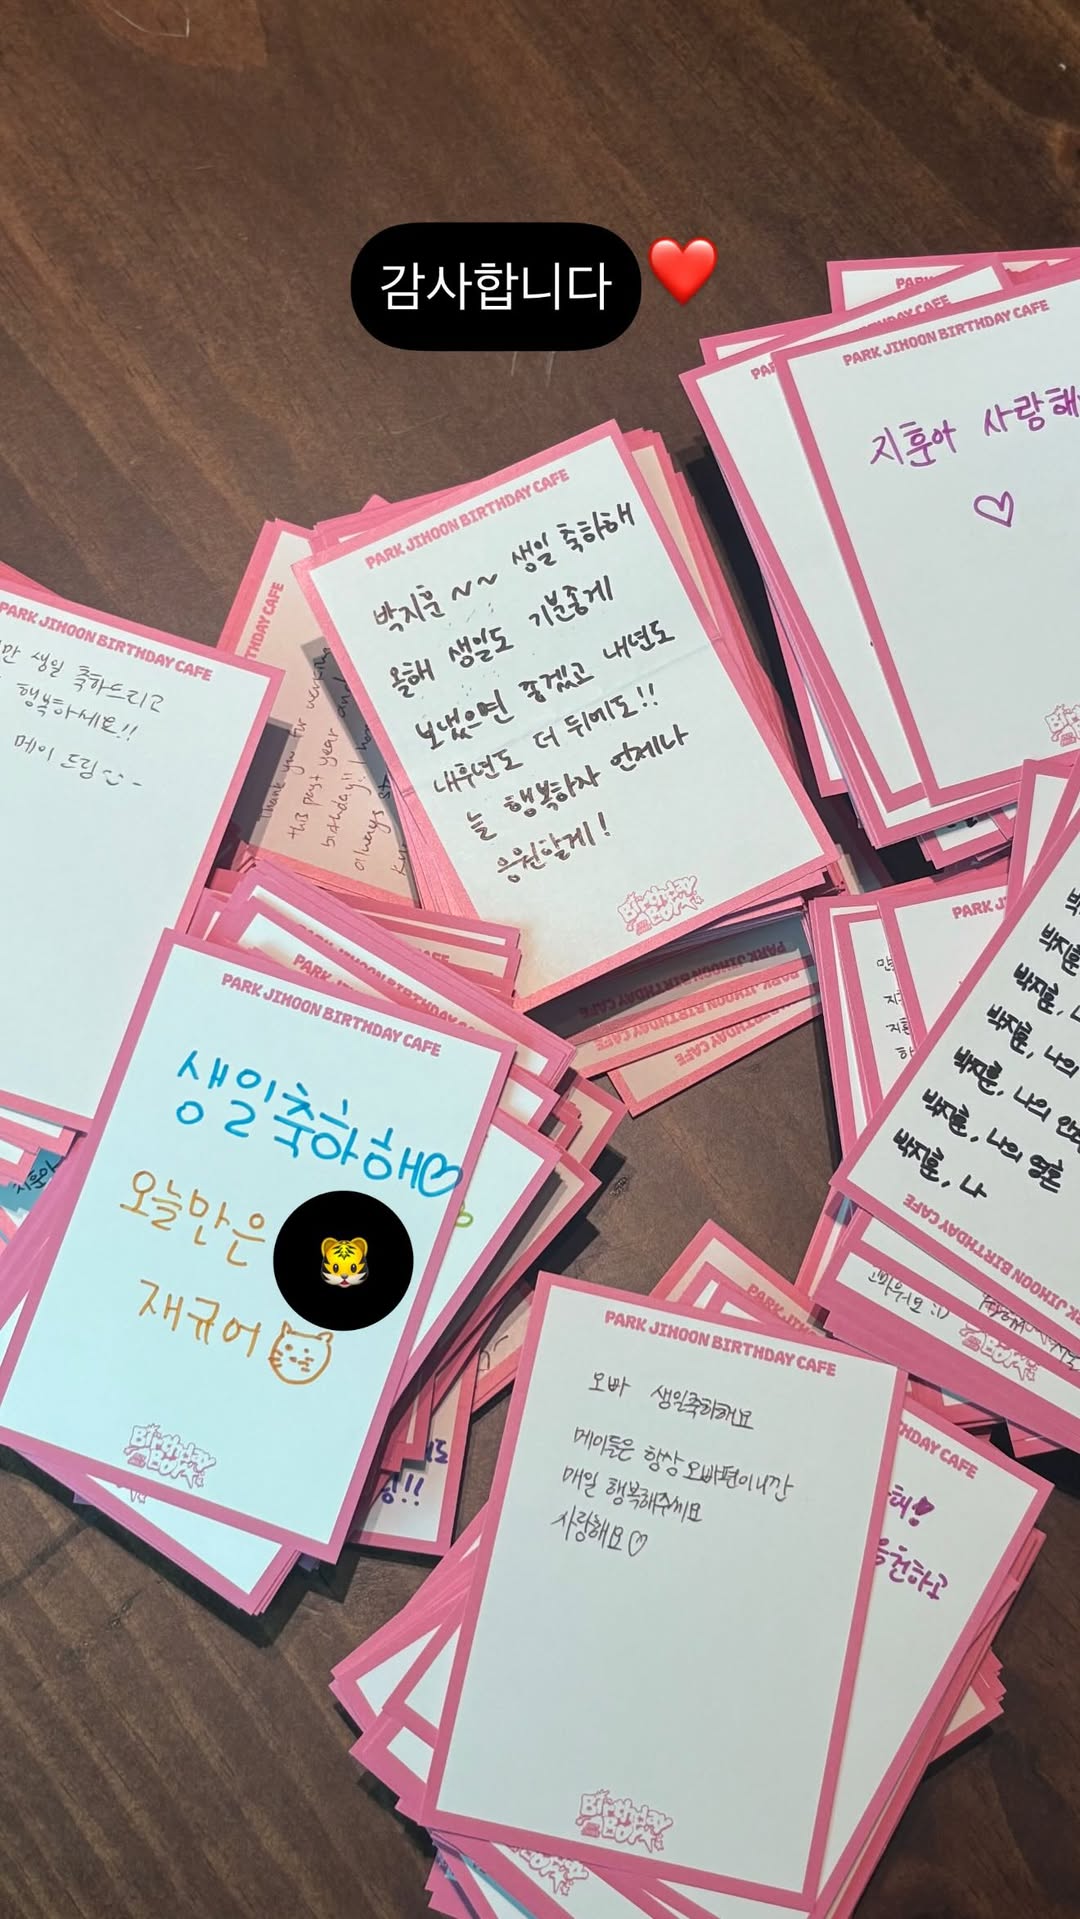 감사합니다
PARK
CAFE
PARK JIHOON BIRTHDAY CAFE
지훈아 사랑해
PARK JIHOON BIRTHDAY CAFE
박지훈~~ 생일 축하해
올해 생일도 기분좋게
보냈으면 좋겠고 내년도
내후년도 더 뒤에도!!
늘 행복하자 언제나
응원할게!
Birthday
BOY
THDAY CAFE
Thank you for working
this past year and
birthday!! I
always
PARK JIHOON BIRTHDAY CAFE
생일 축하드리고
행복하세요!!
메이 드림
PARK JIHOON BIRTHDAY CAFE
생일축하해♡
오늘만은
재규어
Birthday
BOY
PARK JIHOON BIRTHDAY CAFE
PARK JIHOON BIRTHDAY CAFE
BIRTHDAY CAFE
PARK JI
박지훈
박지훈,
박지훈, 나의
박지훈, 나의
박지훈, 나의 영혼
박지훈, 나
JIHOON BIRTHDAY CAFE
고마워요 :)
PARK JIHOON BIRTHDAY CAFE
오빠 생일축하해요
메이들은 항상 오빠편이니깐
매일 행복해주세요
사랑해요♡
Birthday
BOY
HDAY CAFE
해!
응원하고